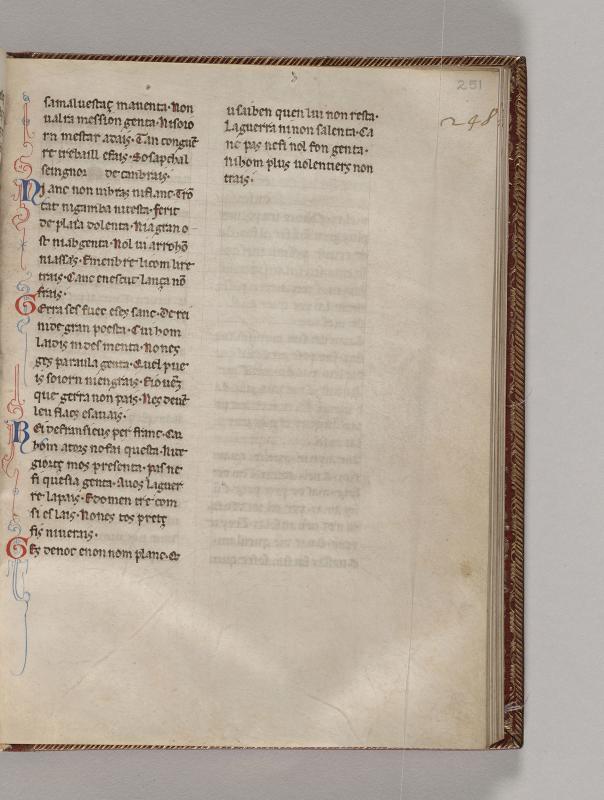 251
248
samaluestatz mauenta·Non
ual ra mession genta·Nisoio
rn mestar adais·Tan conguer
re trebaill efais·So sapchal
seingnor de cambrais·
Ni anc non ui bras ni flanc·Tro
cat ni gamba ni testa·ferit
de plaia dolenta·Nia gran o
st ni ab genta·Nol ui a rrohon
ni assais·E membre li com li re
trais·Canc en escut lança non
frais·
Gerra ses fuec e ses sanc·De rei
ni de gran poesta·Cui hom
laidis ni desmenta·Non es
ges paraula genta·Quel pue
is soiorn ni engrais·E iouenz
que gerra non pais·Nes deuen
leu flacs e sauais·
Rei de fransa us per franc·Ca
hom a tortz no fai questa·Ni de
giortz mos presenta·pas ne
fi questa genta·Auos la guer
re la pais·E domen tre com
si es lais·Non es tos pretz
fis ni uerais·
Ges den oc e non nom planc·Qe
u sai ben quen lui non resta·
La guerra ni non salenta·Ca
nc pas ne fi nol fon genta·
Ni hom plus uolentiers non
trais·